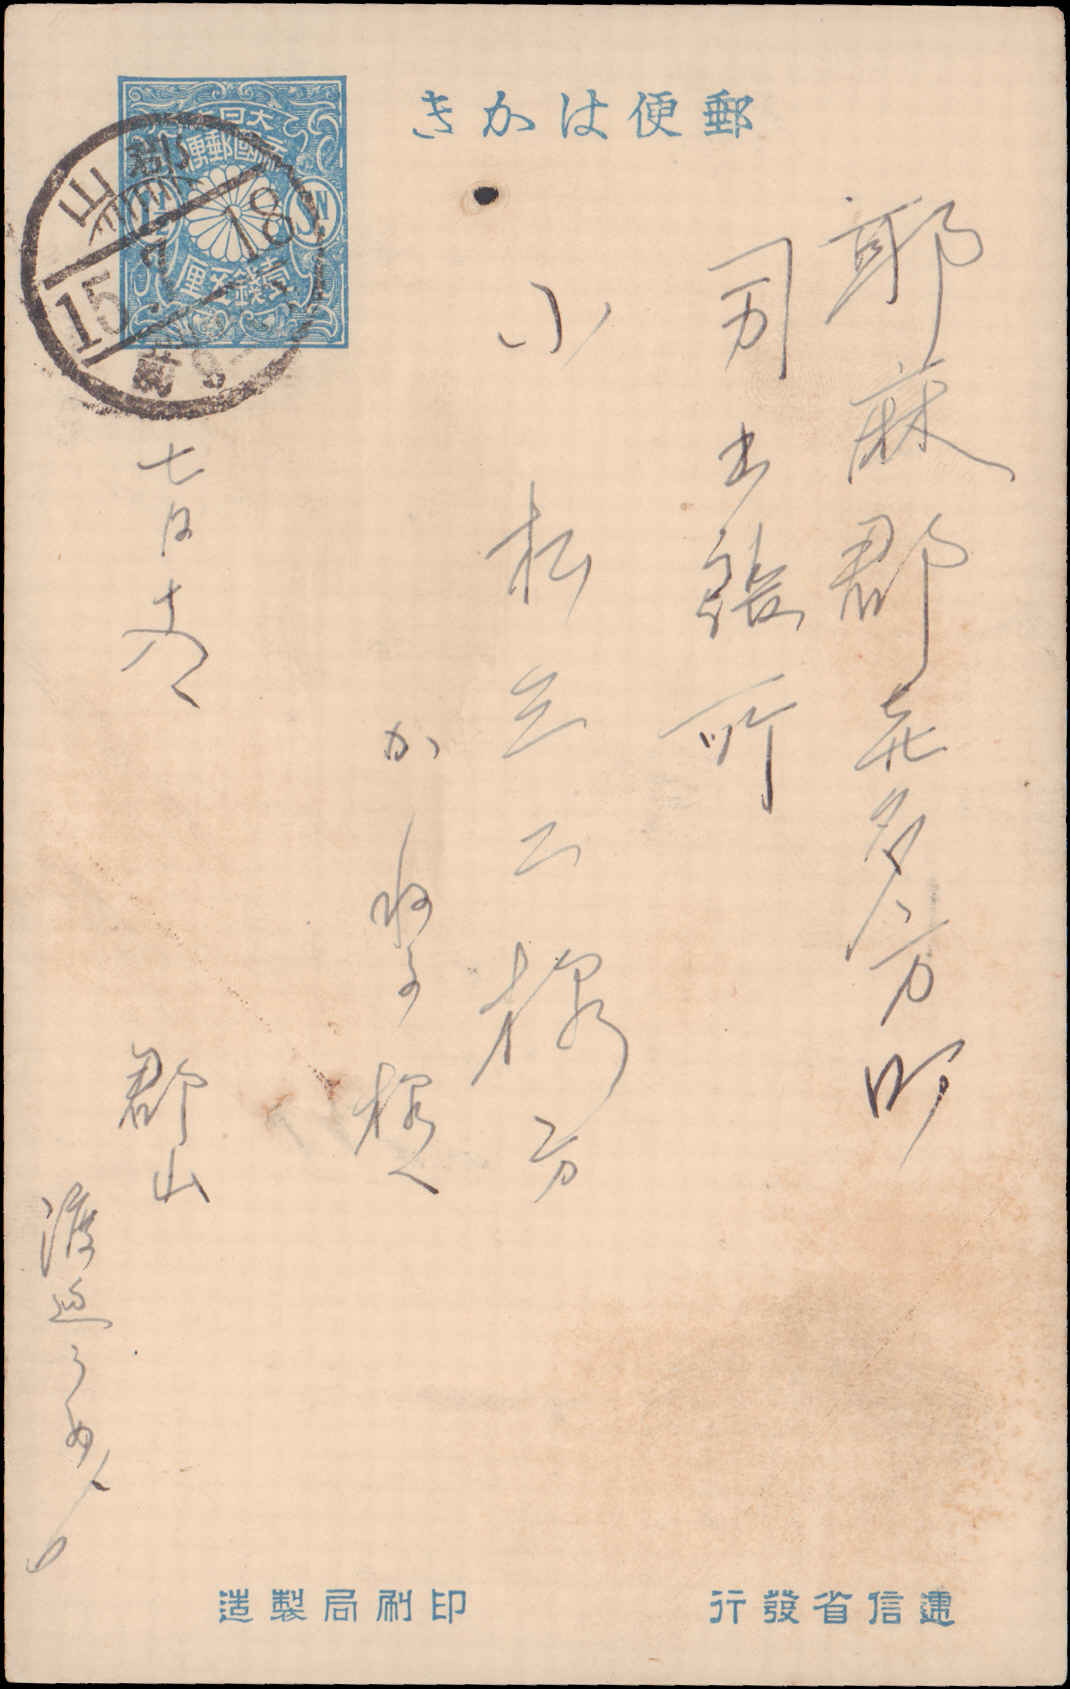 郵便はかき
大日本帝國郵便
壹錢五厘
Sn
郡山
15 7 18
耶麻郡喜多方町
出張所
小松
様方
かね子様
七月
郡山
渡辺うめ
遞信省發行
印刷局製造